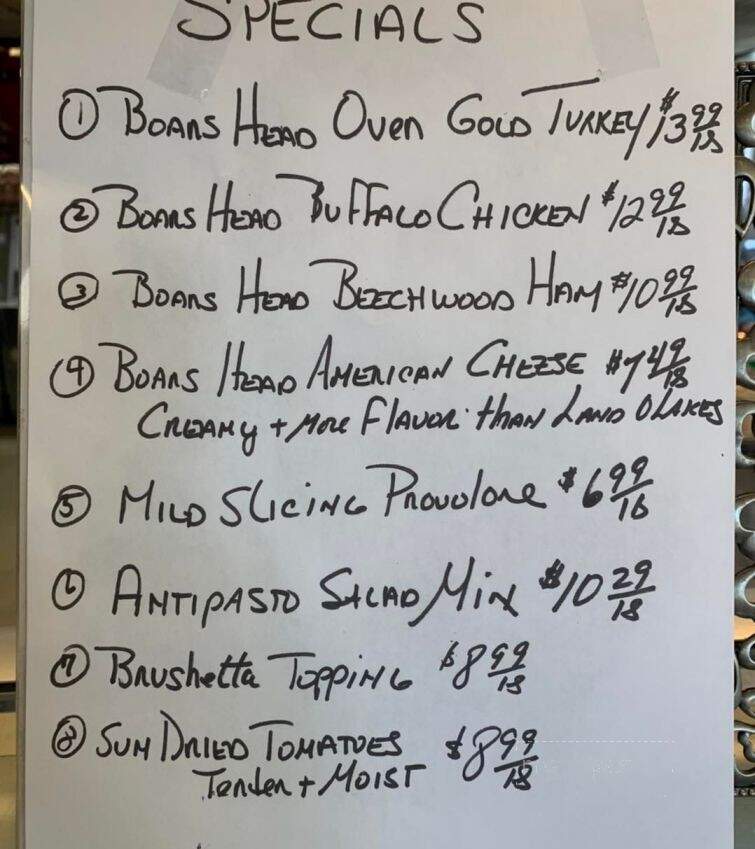 SPECIALS
① BOARS HEAD OVEN GOLD TURKEY $13 99/lb
② BOARS HEAD BUFFALO CHICKEN $12 99/lb
③ BOARS HEAD BEECHWOOD HAM $10 99/lb
④ BOARS HEAD AMERICAN CHEESE $7 49/lb
CREAMY + MORE FLAVOR THAN LAND O LAKES
⑤ MILD SLICING PROVOLONE $6 99/lb
⑥ ANTIPASTO SALAD MIX $10 29/lb
⑦ Brushetta TOPPING $8 99/lb
⑧ SUN DRIED TOMATOES $8 99/lb
Tender + MOIST